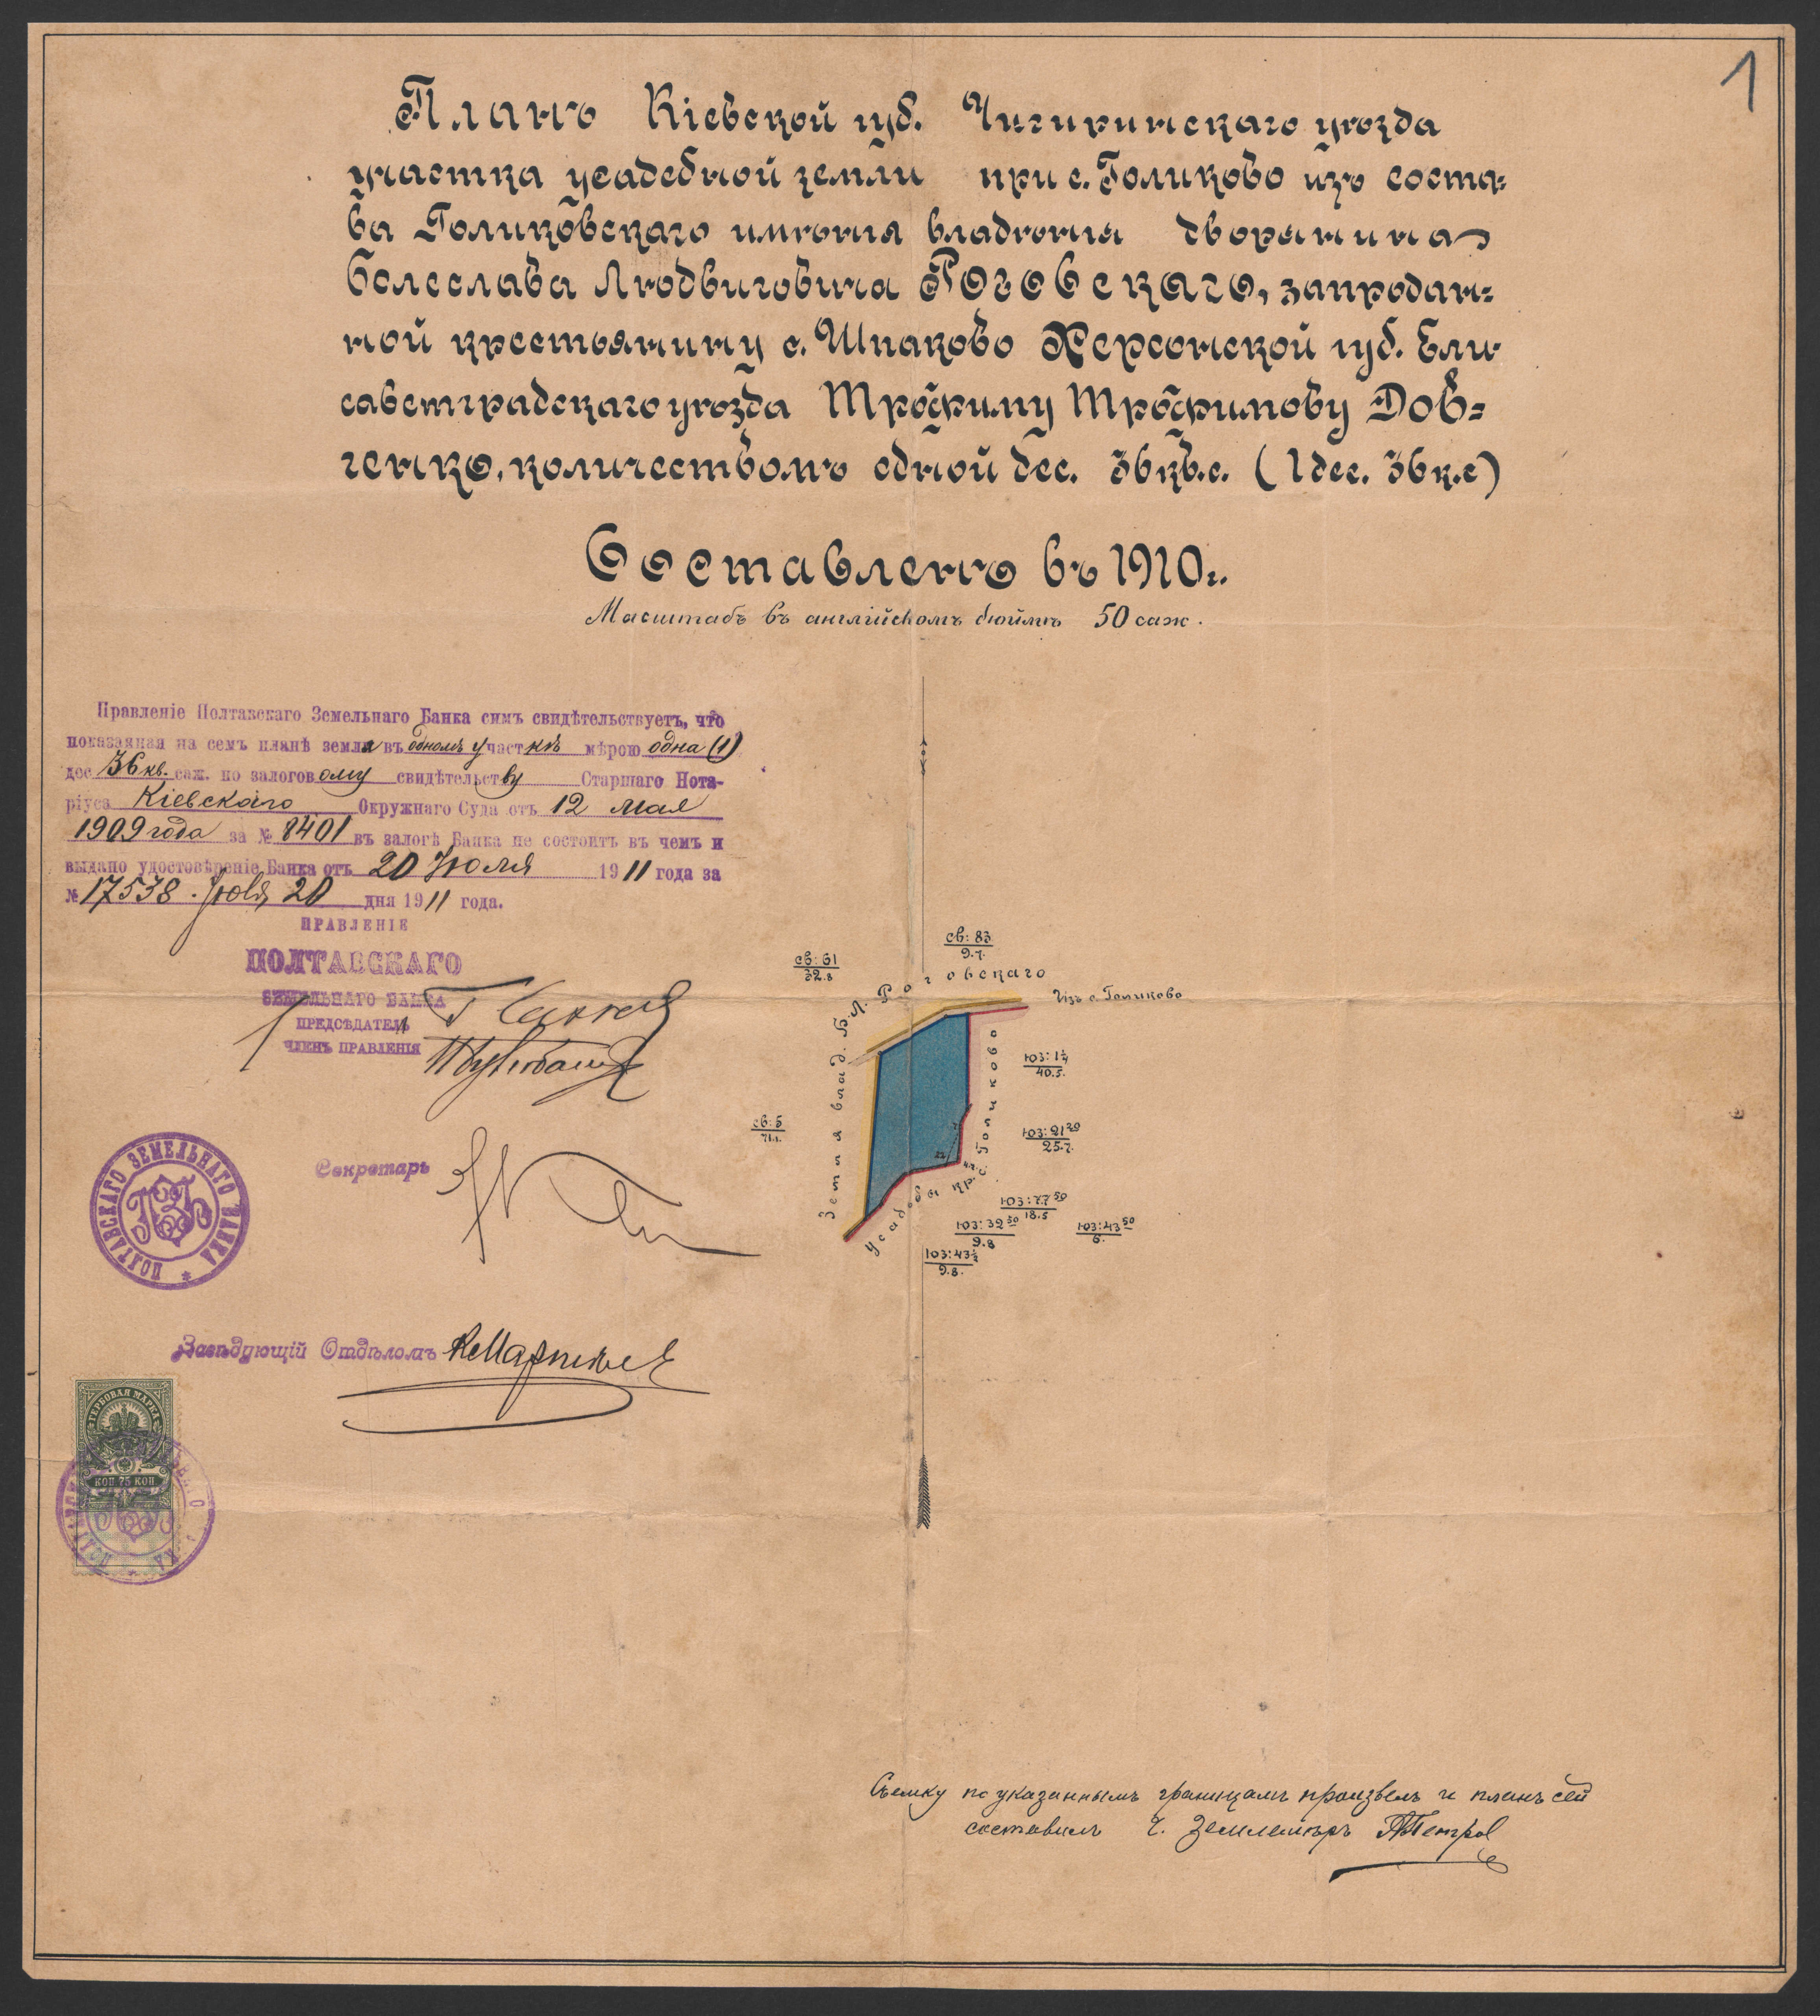 1
Планъ Кіевской губ. Чигиринскаго уѣзда
участка усадебной земли при с. Голиково изъ соста=
ва Голиковскаго имѣнія владѣнія дворянина
Болеслава Людвиговича Роговскаго, запродан=
ной крестьянину с. Шпаково Херсонской губ. Ели-
саветградскаго уѣзда Трофиму Трофимову Дов=
генко, количествомъ одной дес. 36 кв.с. (1 дес. 36 к.с)
Составленъ въ 1910 г.
Масштабъ въ англійскомъ дюймѣ 50 саж.
Правленіе Полтавскаго Земельнаго Банка симъ свидѣтельствуетъ, что
показанная на семъ планѣ земля въ одномъ участкѣ мѣрою одна (1)
дес 36 кв. саж. по залоговому свидѣтельству Старшаго Нота-
ріуса Кіевскаго Окружнаго Суда отъ 12 мая
1909 года за № 8401 въ залогѣ Банка не состоитъ въ чемъ и
выдано удостовѣреніе Банка отъ 20 Іюля 1911 года за
№ 17538. Іюля 20 дня 1911 года.
ПРАВЛЕНІЕ
ПОЛТАВСКАГО
ЗЕМЕЛЬНАГО БАНКА
ПРЕДСѢДАТЕЛЬ
ЧЛЕНЪ ПРАВЛЕНІЯ
Секретарь
ПОЛТАВСКАГО ЗЕМЕЛЬНАГО БАНКА
ПЗБ
Завѣдующій Отдѣломъ
ГЕРБОВАЯ МАРКА
КОП 75 КОП
св: 83
9.7.
св: 61
32.8
Земля влад. Б.Л. Роговскаго
Изъ с. Голиково
юз: 1¼
40.5.
св: 5
71.1.
юз: 21 20
25.7.
Усадьбы кр. с. Голиково
юз: 77 50
18.5
юз: 32 30
9.8
юз: 43 50
6.
юз: 43½
9.8.
Съемку по указаннымъ границамъ произвелъ и планъ сей
составилъ Ч. Землемѣръ Петров